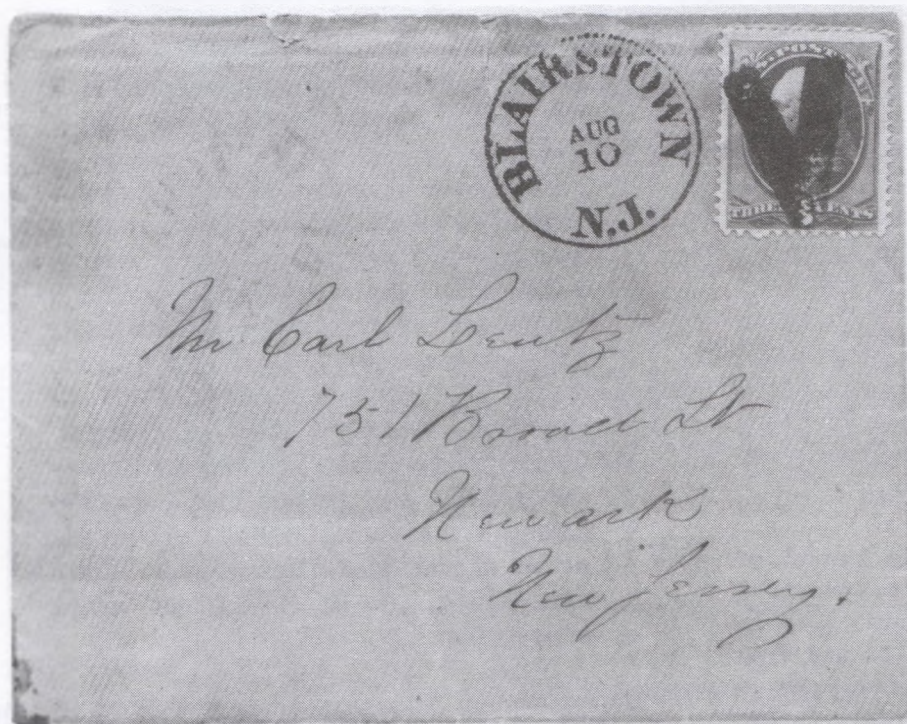 BLAIRSTOWN
AUG
10
N.J.
U.S. POSTAGE
THREE CENTS
Mr Carl Lentz
751 Broad St
Newark
New Jersey.